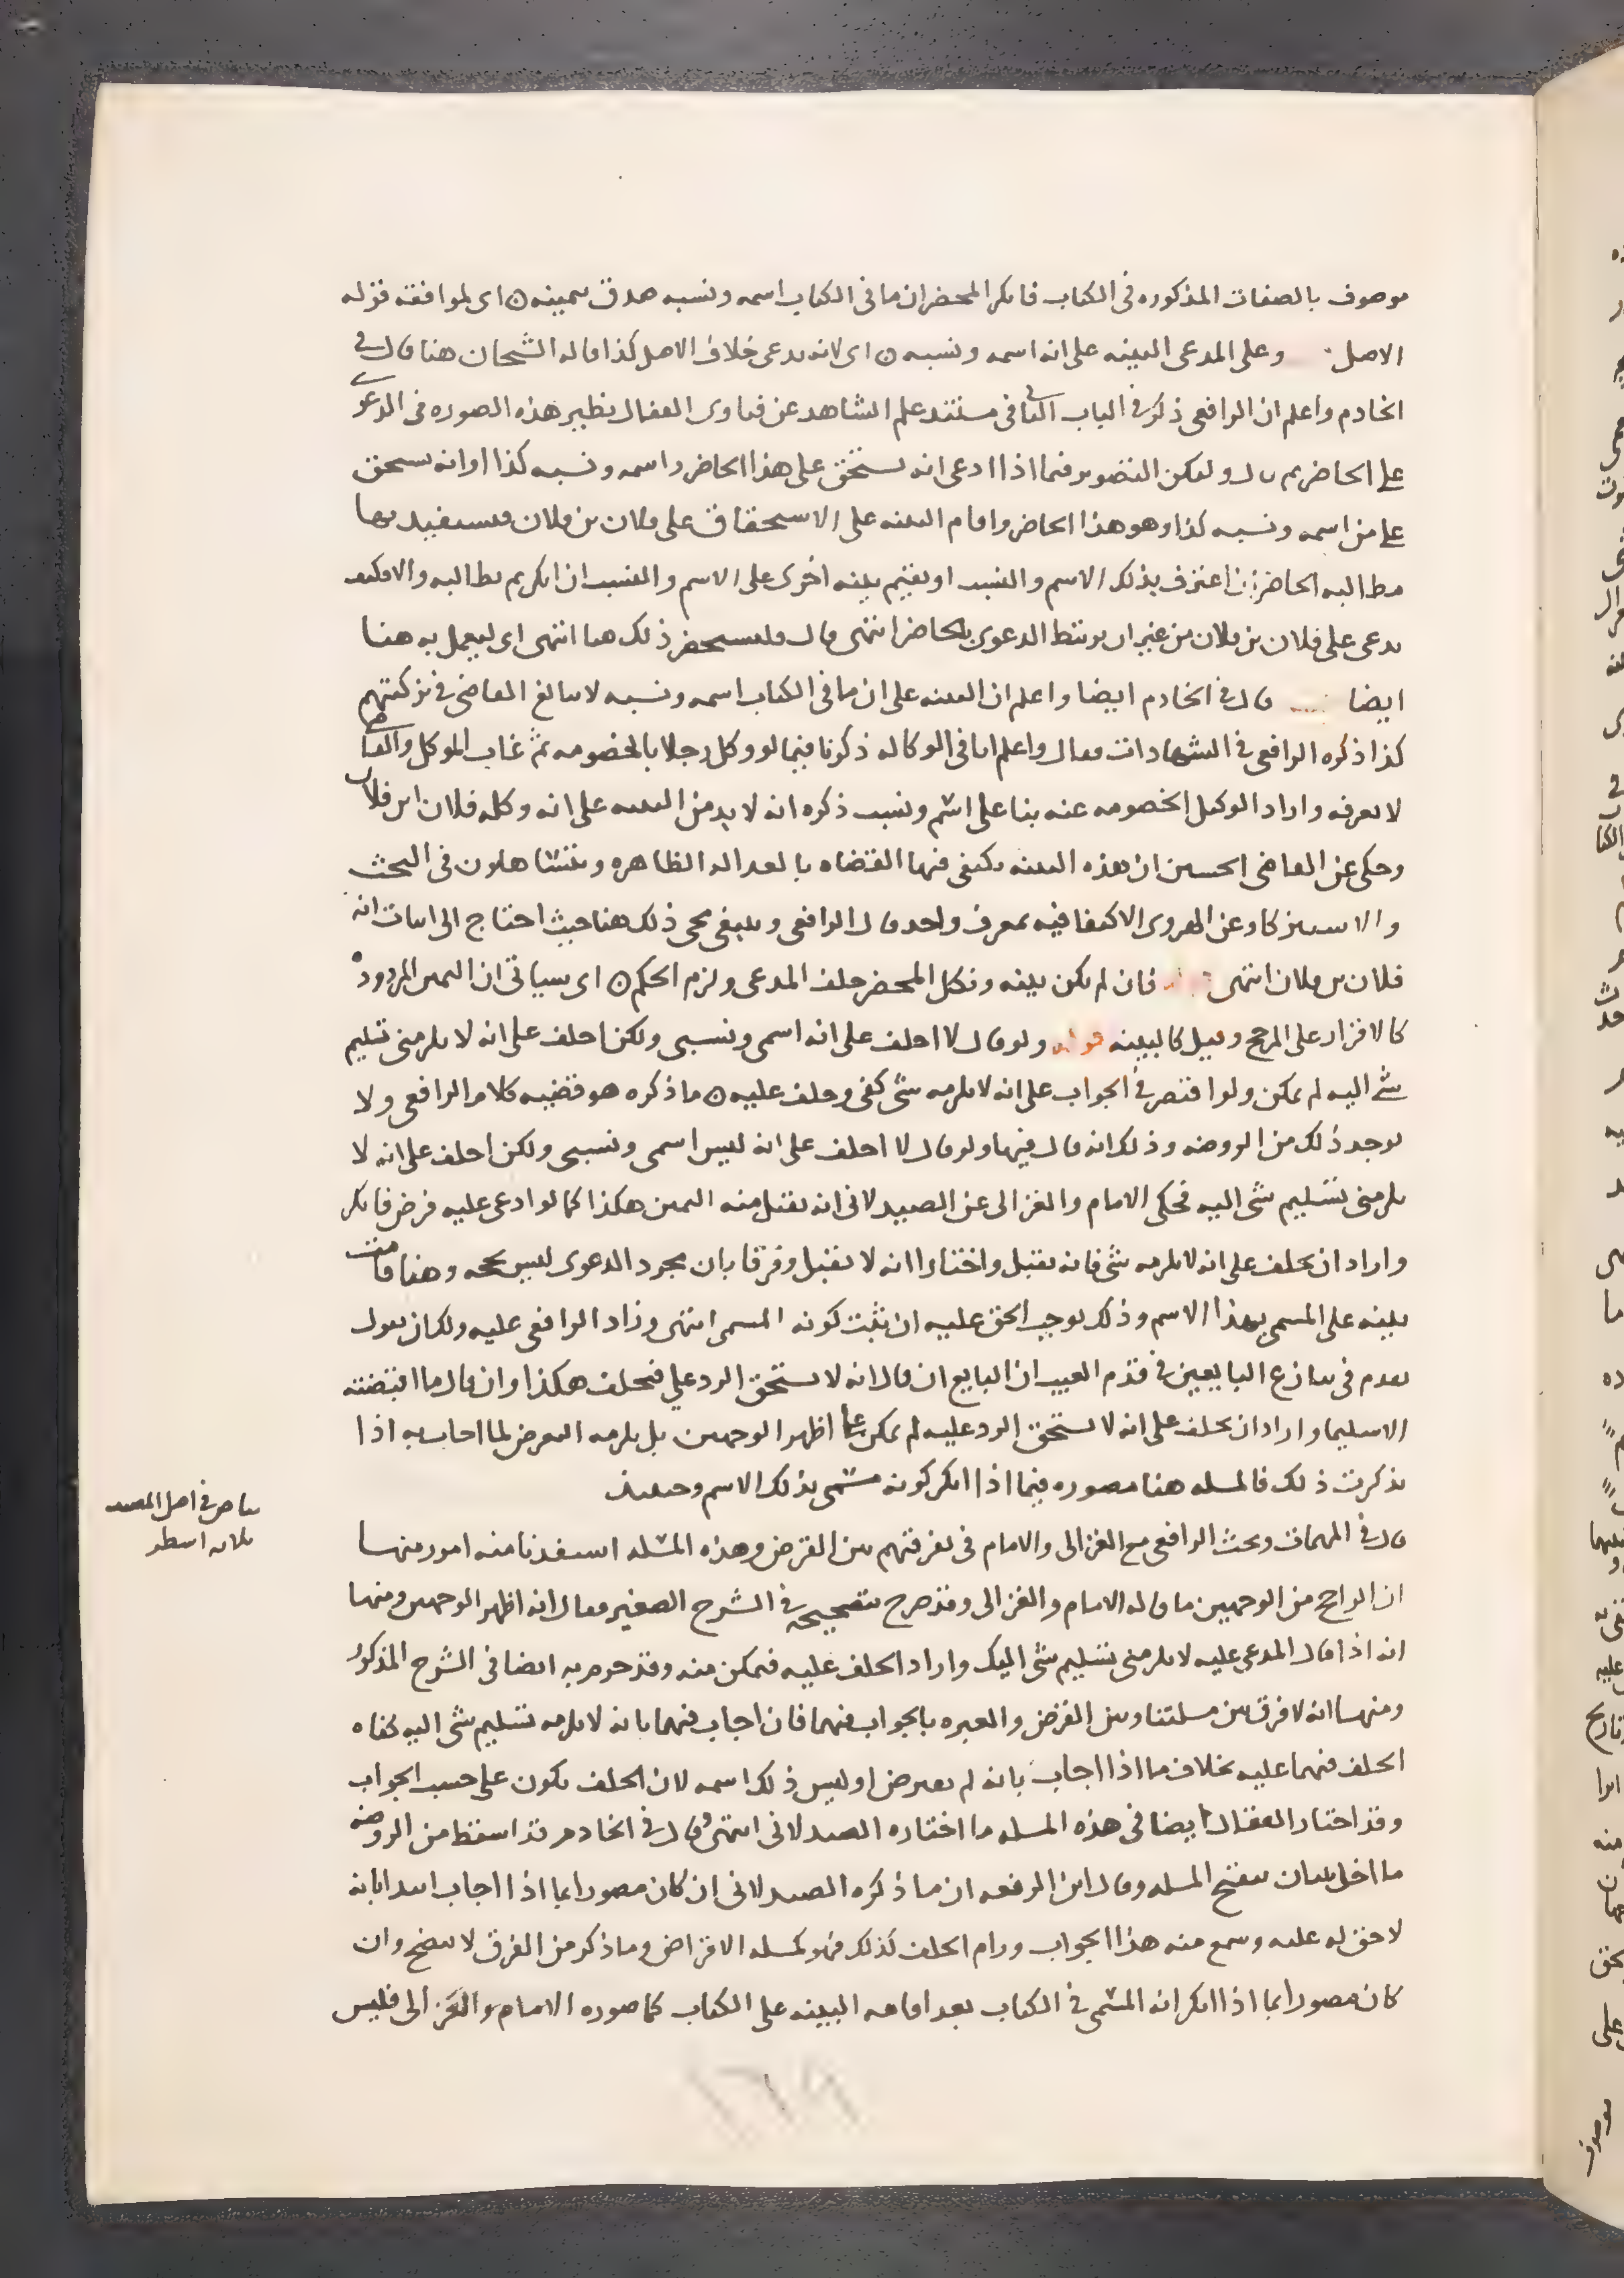 موصوف بالصفات المذكوره فى الكتاب فانكر المحضر ان ما فى الكتاب اسمه ونسبه صدق بيمينه ن اى لموافقة قوله
الاصل وعلى المدعى البينه على انه اسمه ونسبه ن اى لانه يدعى خلاف الاصل كذا قاله الشيخان هنا قال فى
الخادم واعلم ان الرافعى ذكر فى الباب الثانى فى مستند علم الشاهد عن فتاوى القفال نظير هذه الصوره فى الدعوى
على الحاضر ثم قال ولتكن التصوير فيما اذا ادعى انه يستحق على هذا الحاضر واسمه ونسبه كذا او انه يستحق
على من اسمه ونسبه كذا وهو هذا الحاضر واقام البينه على الاستحقاق على فلان بن فلان فيستفيد بها
مطالبه الحاضر ان اعترف بذلك الاسم والنسب او يقيم بينه اخرى على الاسم والنسب ان انكر ثم يطالبه والا فكيف
يدعى على فلان بن فلان من غير ان يرتبط الدعوى بالحاضر انتهى قال فليستحضر ذلك هنا انتهى اى ليعمل به هنا
ايضا قال فى الخادم ايضا واعلم ان البينه على ان ما فى الكتاب اسمه ونسبه لا يبالغ القاضى فى تزكيتهم
كذا ذكره الرافعى فى الشهادات فقال واعلم انا فى الوكاله ذكرنا فيما لو وكل رجلا بالخصومه ثم غاب الموكل والقاضى
لا يعرفه واراد الوكيل الخصومه عنه بنا على اسم ونسب ذكره انه لا بد من البينه على انه وكله فلان ابن فلان
وحكى عن القاضى الحسين ان هذه البينه يكتفى فيها القضاه بالعداله الظاهره ويتساهلون فى البحث
والاستزكا وعن الهروى الاكتفا فيه بمعرف واحد قال الرافعى وينبغى مجى ذلك هنا حيث احتاج الى اثبات انه
فلان بن فلان انتهى فان لم يكن بينه ونكل المحضر حلف المدعى ولزم الحكم ن اى سياتى ان اليمين المردوده
كالاقرار على المرجح وقيل كالبينه قوله ولو قال لا احلف على انه اسمى ونسبى ولكن احلف على انه لا يلزمنى تسليم
شى اليه لم يمكن ولو اقتصر فى الجواب على انه لا يلزمه شى كفى وحلف عليه ن ما ذكره هو قضيه كلام الرافعى ولا
يوجد ذلك من الروضه وذلك انه قال فيها ولو قال لا احلف على انه ليس اسمى ونسبى ولكن احلف على انه لا
يلزمنى تسليم شى اليه فحكى الامام والغزالى عن الصيدلانى انه يقبل منه اليمين هكذا كما لو ادعى عليه قرض فانكر
واراد ان يحلف على انه لا يلزمه شى فانه يقبل واختارا انه لا يقبل وفرقا بان مجرد الدعوى ليس بحجه وهنا قامت
بينه على المسمى بهذا الاسم وذلك يوجب الحق عليه ان ثبت كونه المسمى انتهى وزاد الرافعى عليه ولكان يقول
تقدم فى تنازع البايعين فى قدم العيب ان البايع ان قال انه لا يستحق الرد على فيحلف هكذا وان قال ما اقبضته
الا سليما واراد ان يحلف على انه لا يستحق الرد عليه لم يمكن على اظهر الوجهين بل يلزمه التعرض لما اجاب به اذا
تذكرت ذلك فالمسله هنا مصوره فيما اذا انكر كونه مسمى بذلك الاسم وحينيذ
بياض فى اصل المصنف
ثلاثه اسطر
قال فى المهمات وبحث الرافعى مع الغزالى والامام فى تفرقتهم بين القرض وهذه المسله استفدنا منه امور منها
ان الراجح من الوجهين ما قاله الامام والغزالى وقد صرح بتصحيحه فى الشرح الصغير فقال انه اظهر الوجهين ومنها
انه اذا قال المدعى عليه لا يلزمنى تسليم شى اليك واراد الحلف عليه فيمكن منه وقد جزم به ايضا فى الشرح المذكور
ومنها انه لا فرق بين مسلتنا وبين القرض والعبره بالجواب فيهما فان اجاب فيهما بانه لا يلزمه تسليم شى اليه كفاه
الحلف فيهما عليه بخلاف ما اذا اجاب بانه لم يقترض او ليس ذلك اسمه لان الحلف يكون على حسب الجواب
وقد اختار القفال ايضا فى هذه المسله ما اختاره الصيدلانى انتهى وقال فى الخادم قد اسقط من الروضه
ما اخل ببيان تنقيح المسله وقال ابن الرفعه ان ما ذكره الصيدلانى ان كان مصورا بما اذا اجاب ابتدا بانه
لا حق له عليه وسمع منه هذا الجواب ورام الحلف كذلك فهو كمسله الاقراض وما ذكر من الفرق لا يتضح وان
كان مصورا بما اذا انكر انه المسمى فى الكتاب بعد اقامه البينه على الكتاب كما صوره الامام والغزالى فليس